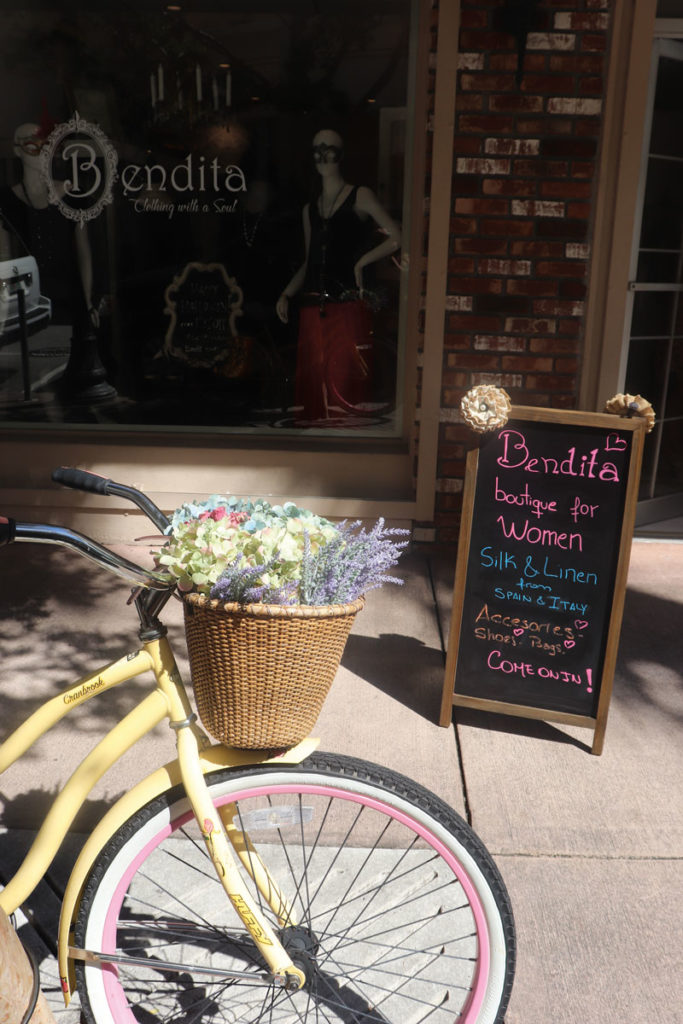 Bendita
Clothing with a Soul
Bendita
boutique for
Women
Silk & Linen
from
SPAIN & ITALY
Accesories-
Shoes. Bags.
COME ON IN!
Cranbrook
HUFFY